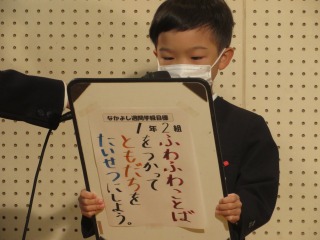 なかよし週間学級目標
1年2組
ふわふわことば
をつかって
ともだちを
たいせつにしよう。